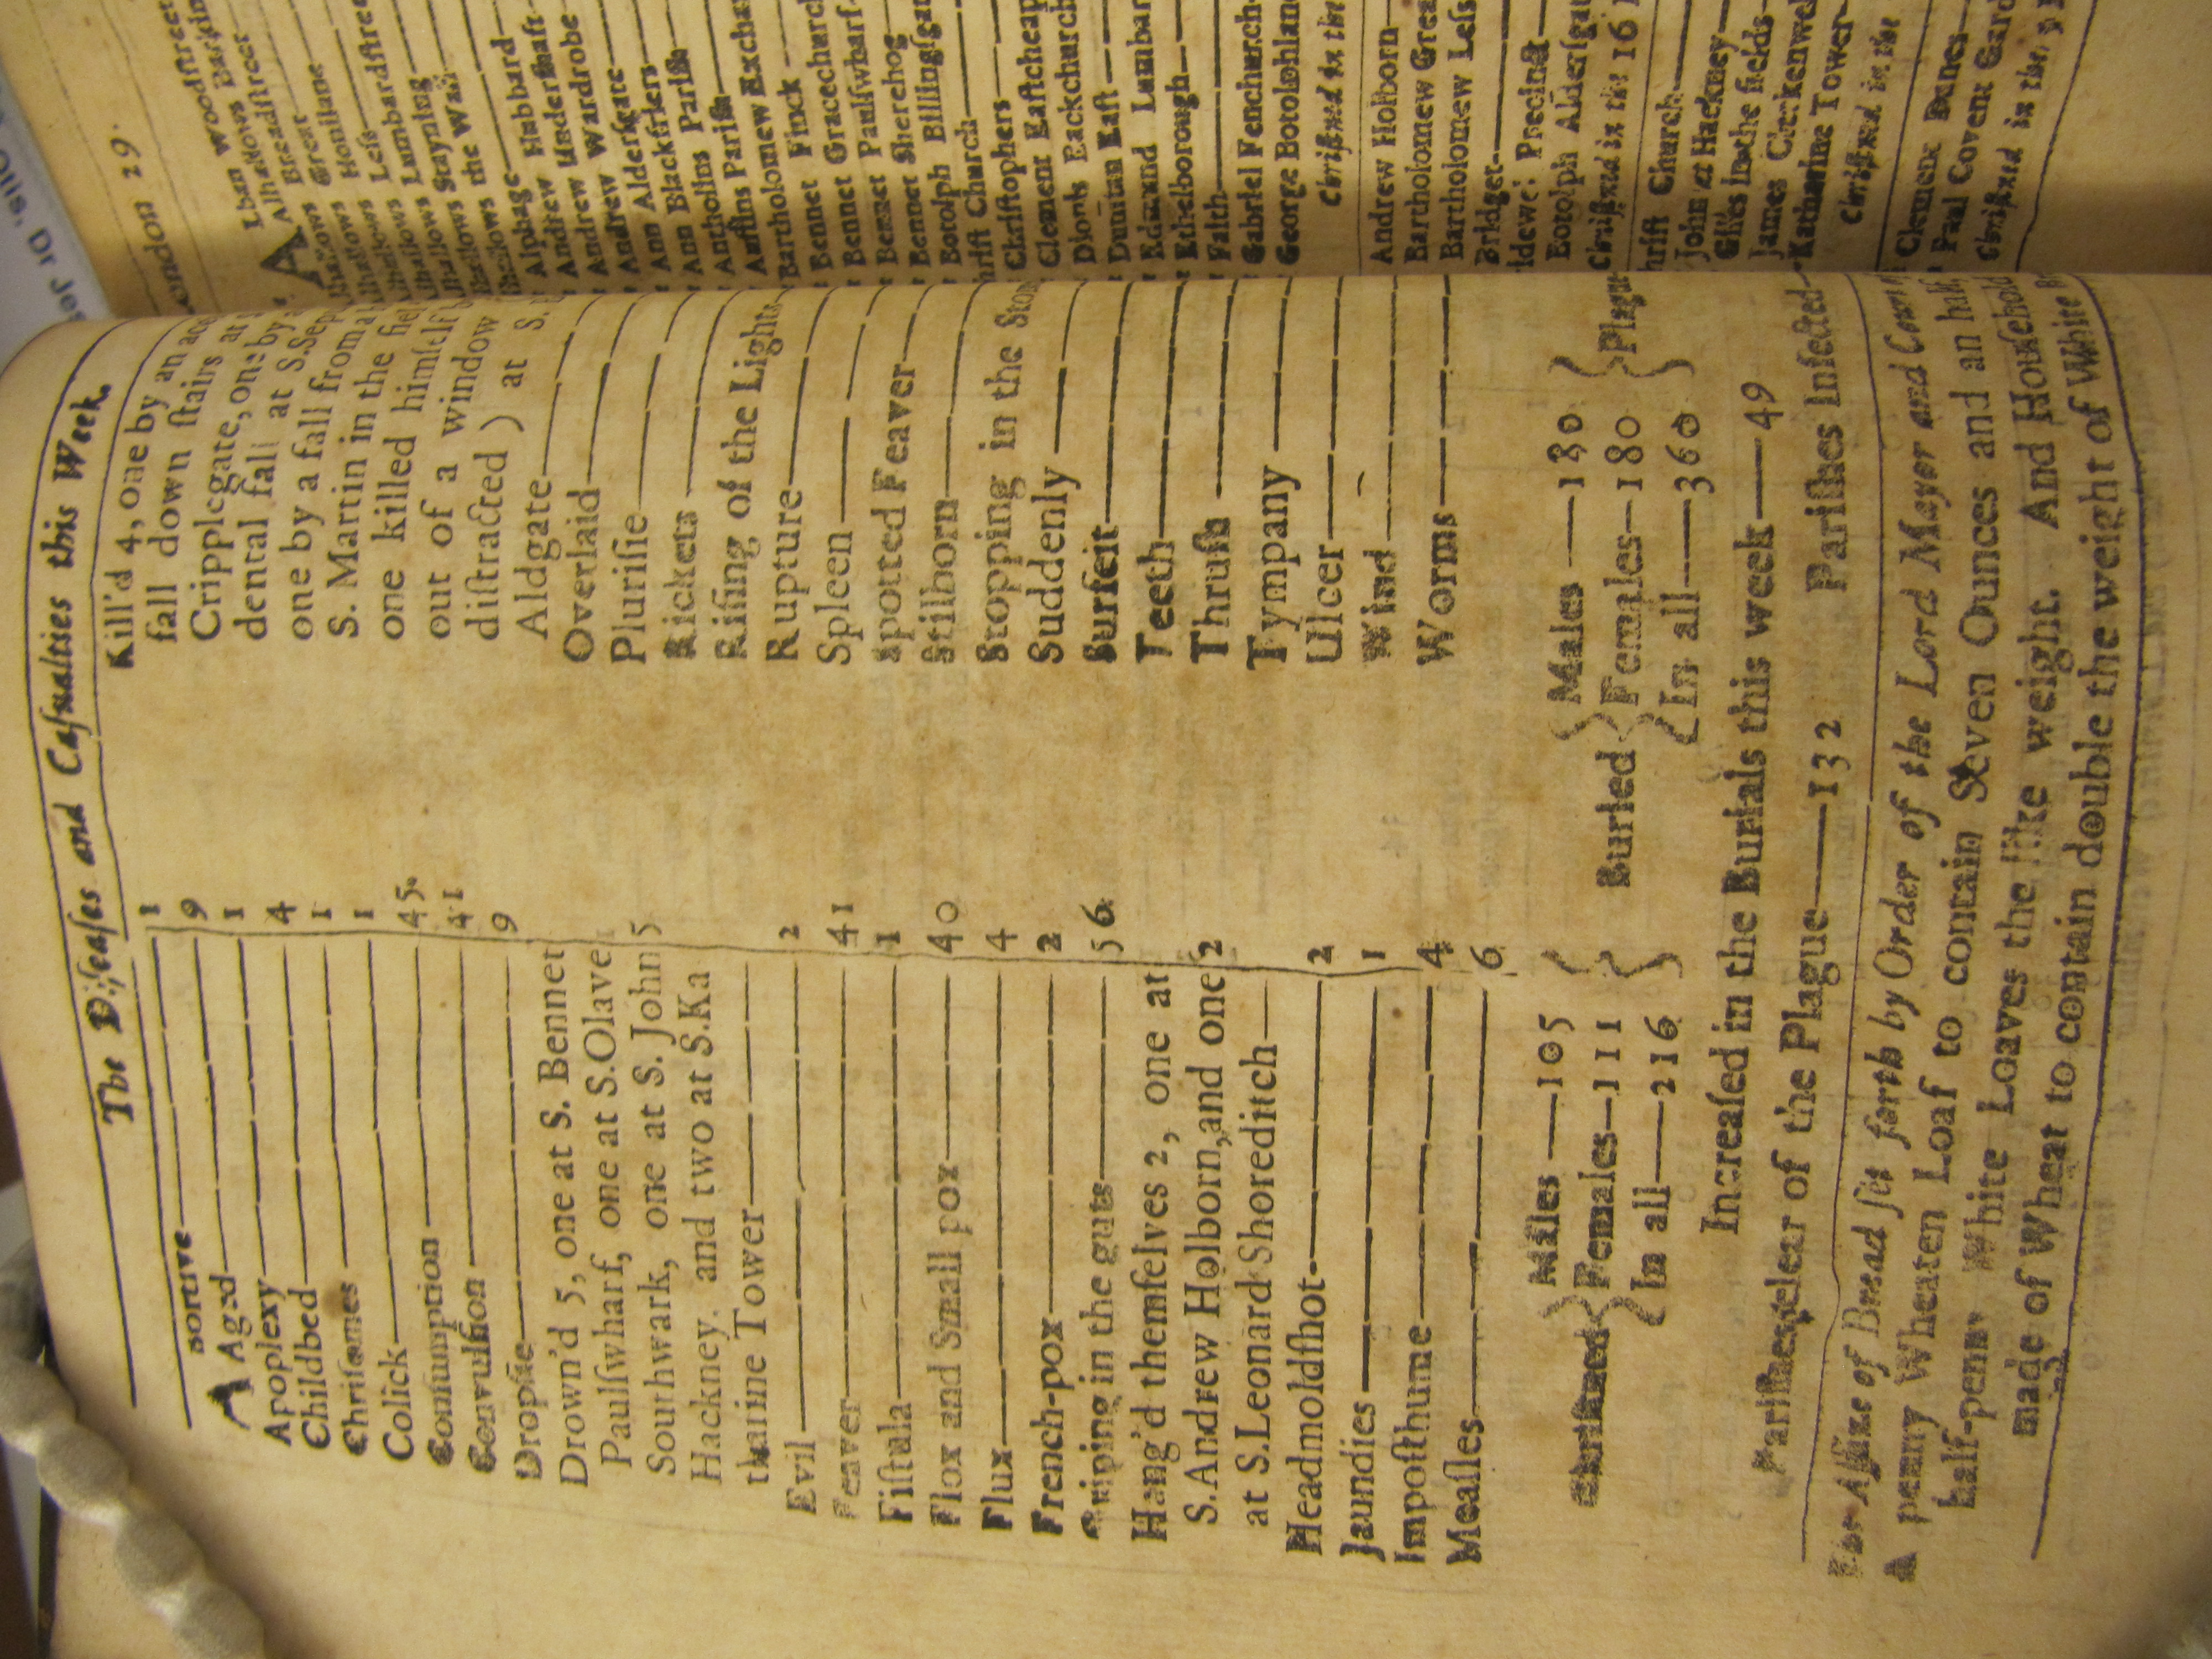 The Diſeaſes and Caſualties this Week.
Abortive 1
Aged 9
Apoplexy 1
Childbed 4
Chriſomes 1
Colick 1
Conſumption 45
Convulſion 41
Dropſie 9
Drown'd 5, one at S. Bennet
Paulſwharf, one at S. Olave
Southwark, one at S. John 5
Hackney. and two at S. Ka
tharine Tower
Evil 2
Feaver 41
Fiſtula 1
Flox and Small pox 40
Flux 4
French-pox 2
Griping in the guts 56
Hang'd themſelves 2, one at
S. Andrew Holborn, and one 2
at S. Leonard Shoreditch
Headmoldſhot 2
Jaundies 1
Impoſthume 4
Meaſles 6
Kill'd 4, one by an
fall down ſtairs at
Cripplegate, one by
dental fall at S. Sep
one by a fall from a
S. Martin in the fiel
one killed himſelf
out of a window
diſtracted ) at S.
Aldgate
Overlaid
Pluriſie
Rickets
Riſing of the Lights
Rupture
Spleen
Spotted Feaver
Stilborn
Stopping in the Stom
Suddenly
Surfeit
Teeth
Thruſh
Tympany
Ulcer
Wind
Worms
Chriſtned
Males 105
Females 111
In all 216
Buried
Males 180
Females 180
In all 360
Plague
Increaſed in the Burials this week 49
Pariſhes clear of the Plague 132 Pariſhes Infected
The Aſſize of Bread ſet forth by Order of the Lord Mayor and Court
A penny Wheaten Loaf to contain Seven Ounces and an half
half-penny White Loaves the like weight. And Houſehold
made of Wheat to contain double the weight of White
London 29.
Alban Woodſtreet
Alhallows Barkin
Alhallows Breadſtreet
Alhallows Great
Alhallows Honilane
Alhallows Leſs
Alhallows Lumbardſtreet
Alhallows Stayning
Alhallows the Wall
Alphage
Andrew Hubbard
Andrew Underſhaft
Andrew Wardrobe
Ann Alderſgate
Ann Blackfriers
Antholins Pariſh
Auſtins Pariſh
Bartholomew Exchan
Bennet Finck
Bennet Gracechurch
Bennet Paulſwharf
Bennet Sherehog
Botolph Billingſgat
Chriſt Church
Chriſtophers
Clement Eaſtcheap
Dionis Backchurch
Dunſtan Eaſt
Edmund Lumbar
Ethelborough
Faith
Gabriel Fenchurch
George Botolphlane
Chriſtned in the
Andrew Holborn
Bartholomew Grea
Bartholomew Leſs
Bridget
Bridewel Precinct
Botolph Alderſgat
Chriſtned in the 16
Chriſt Church
John at Hackney
Giles in the fields
James Clerkenwel
Katharine Tower
Chriſtned in the
Clement Danes
Paul Covent Gard
Chriſtned in the